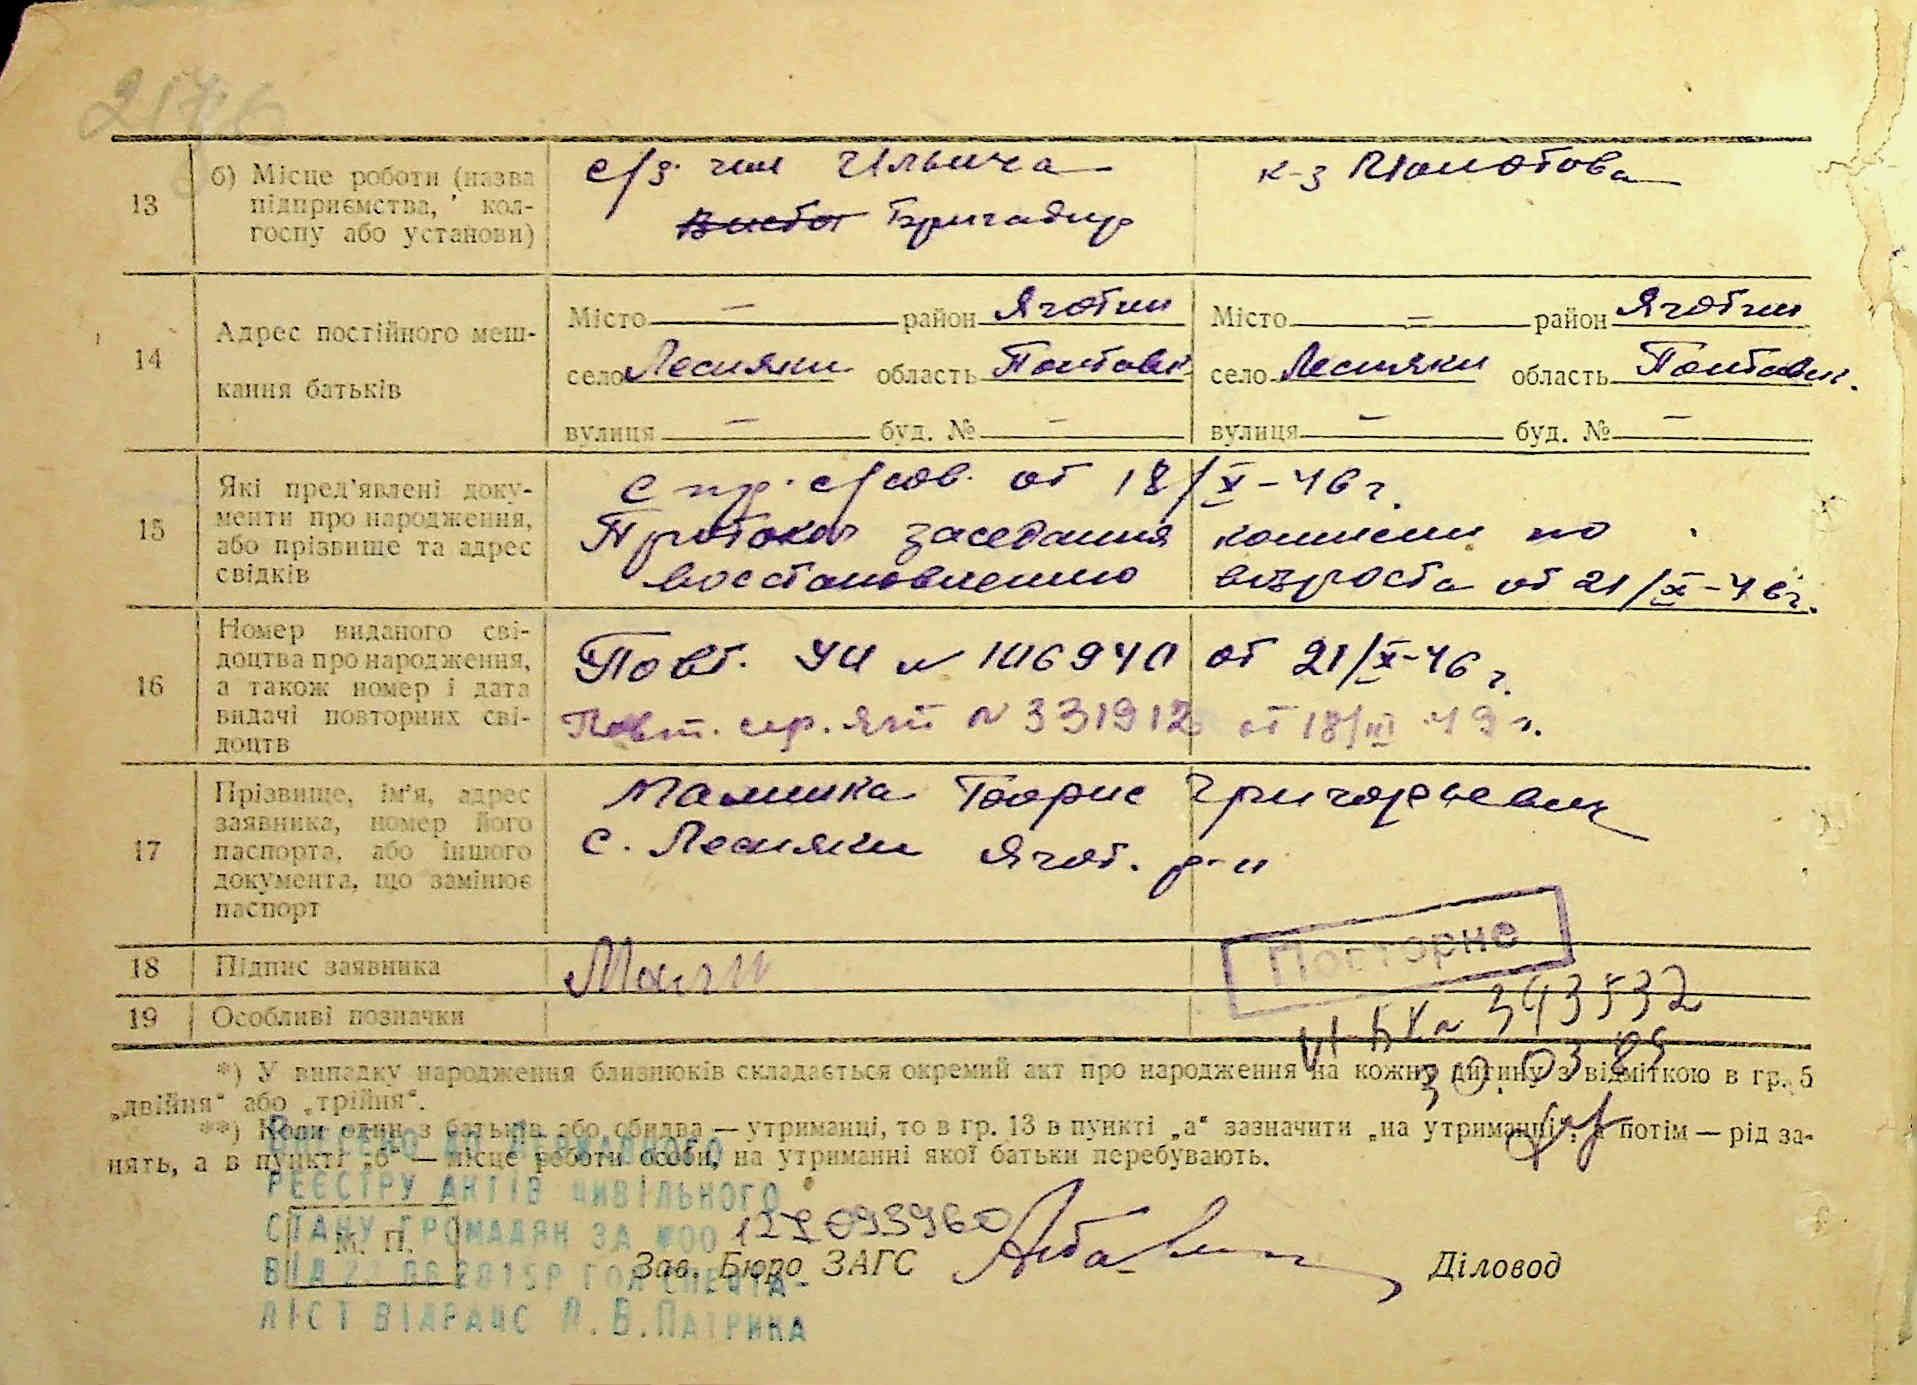 13
б) Місце роботи (назва
підприємства, кол-
госпу або установи)
с/з. им Ильича
Бригадир
к-з Молотова
14
Адрес постійного меш-
кання батьків
Місто — район Яготин
село Лесняки область Полтавс
вулиця — буд. № —
Місто — район Яготин
село Лесняки область Полтавск.
вулиця — буд. № —
15
Які пред'явлені доку-
менти про народження,
або прізвище та адрес
свідків
Спр. с/сов. от 18/X-46 г.
Протокол заседания комисии по
восстановлению возроста от 21/X-46 г.
16
Номер виданого сві-
доцтва про народження,
а також номер і дата
видачі повторних сві-
доцтв
Повт. УИ № 106940 от 21/X-46 г.
Повт. сер. № 331912 от 18/III 49 г.
17
Прізвище, ім'я, адрес
заявника, номер його
паспорта, або іншого
документа, що замінює
паспорт
Малишка Борис Григорьевич
с. Лесняки Ягот. р-н
Повторне
18
Підпис заявника
№ 343532
19
Особливі позначки
30.03 89
*) У випадку народження близнюків складається окремий акт про народження на кожну дитину з відміткою в гр. 5
„двійня" або „трійня".
**) Коли один з батьків або обидва — утриманці, то в гр. 13 в пункті „а" зазначити „на утриманні", а потім — рід за-
нять, а в пункті „б" — місце роботи особи, на утриманні якої батьки перебувають.
РЕЄСТРУ АКТІВ ЦИВІЛЬНОГО
СТАНУ ГРОМАДЯН ЗА №00127093960
М. П.
Зав. Бюро ЗАГС
Діловод
ЛІСТ ВІДРАЦС Л.В.ПАТРИКА